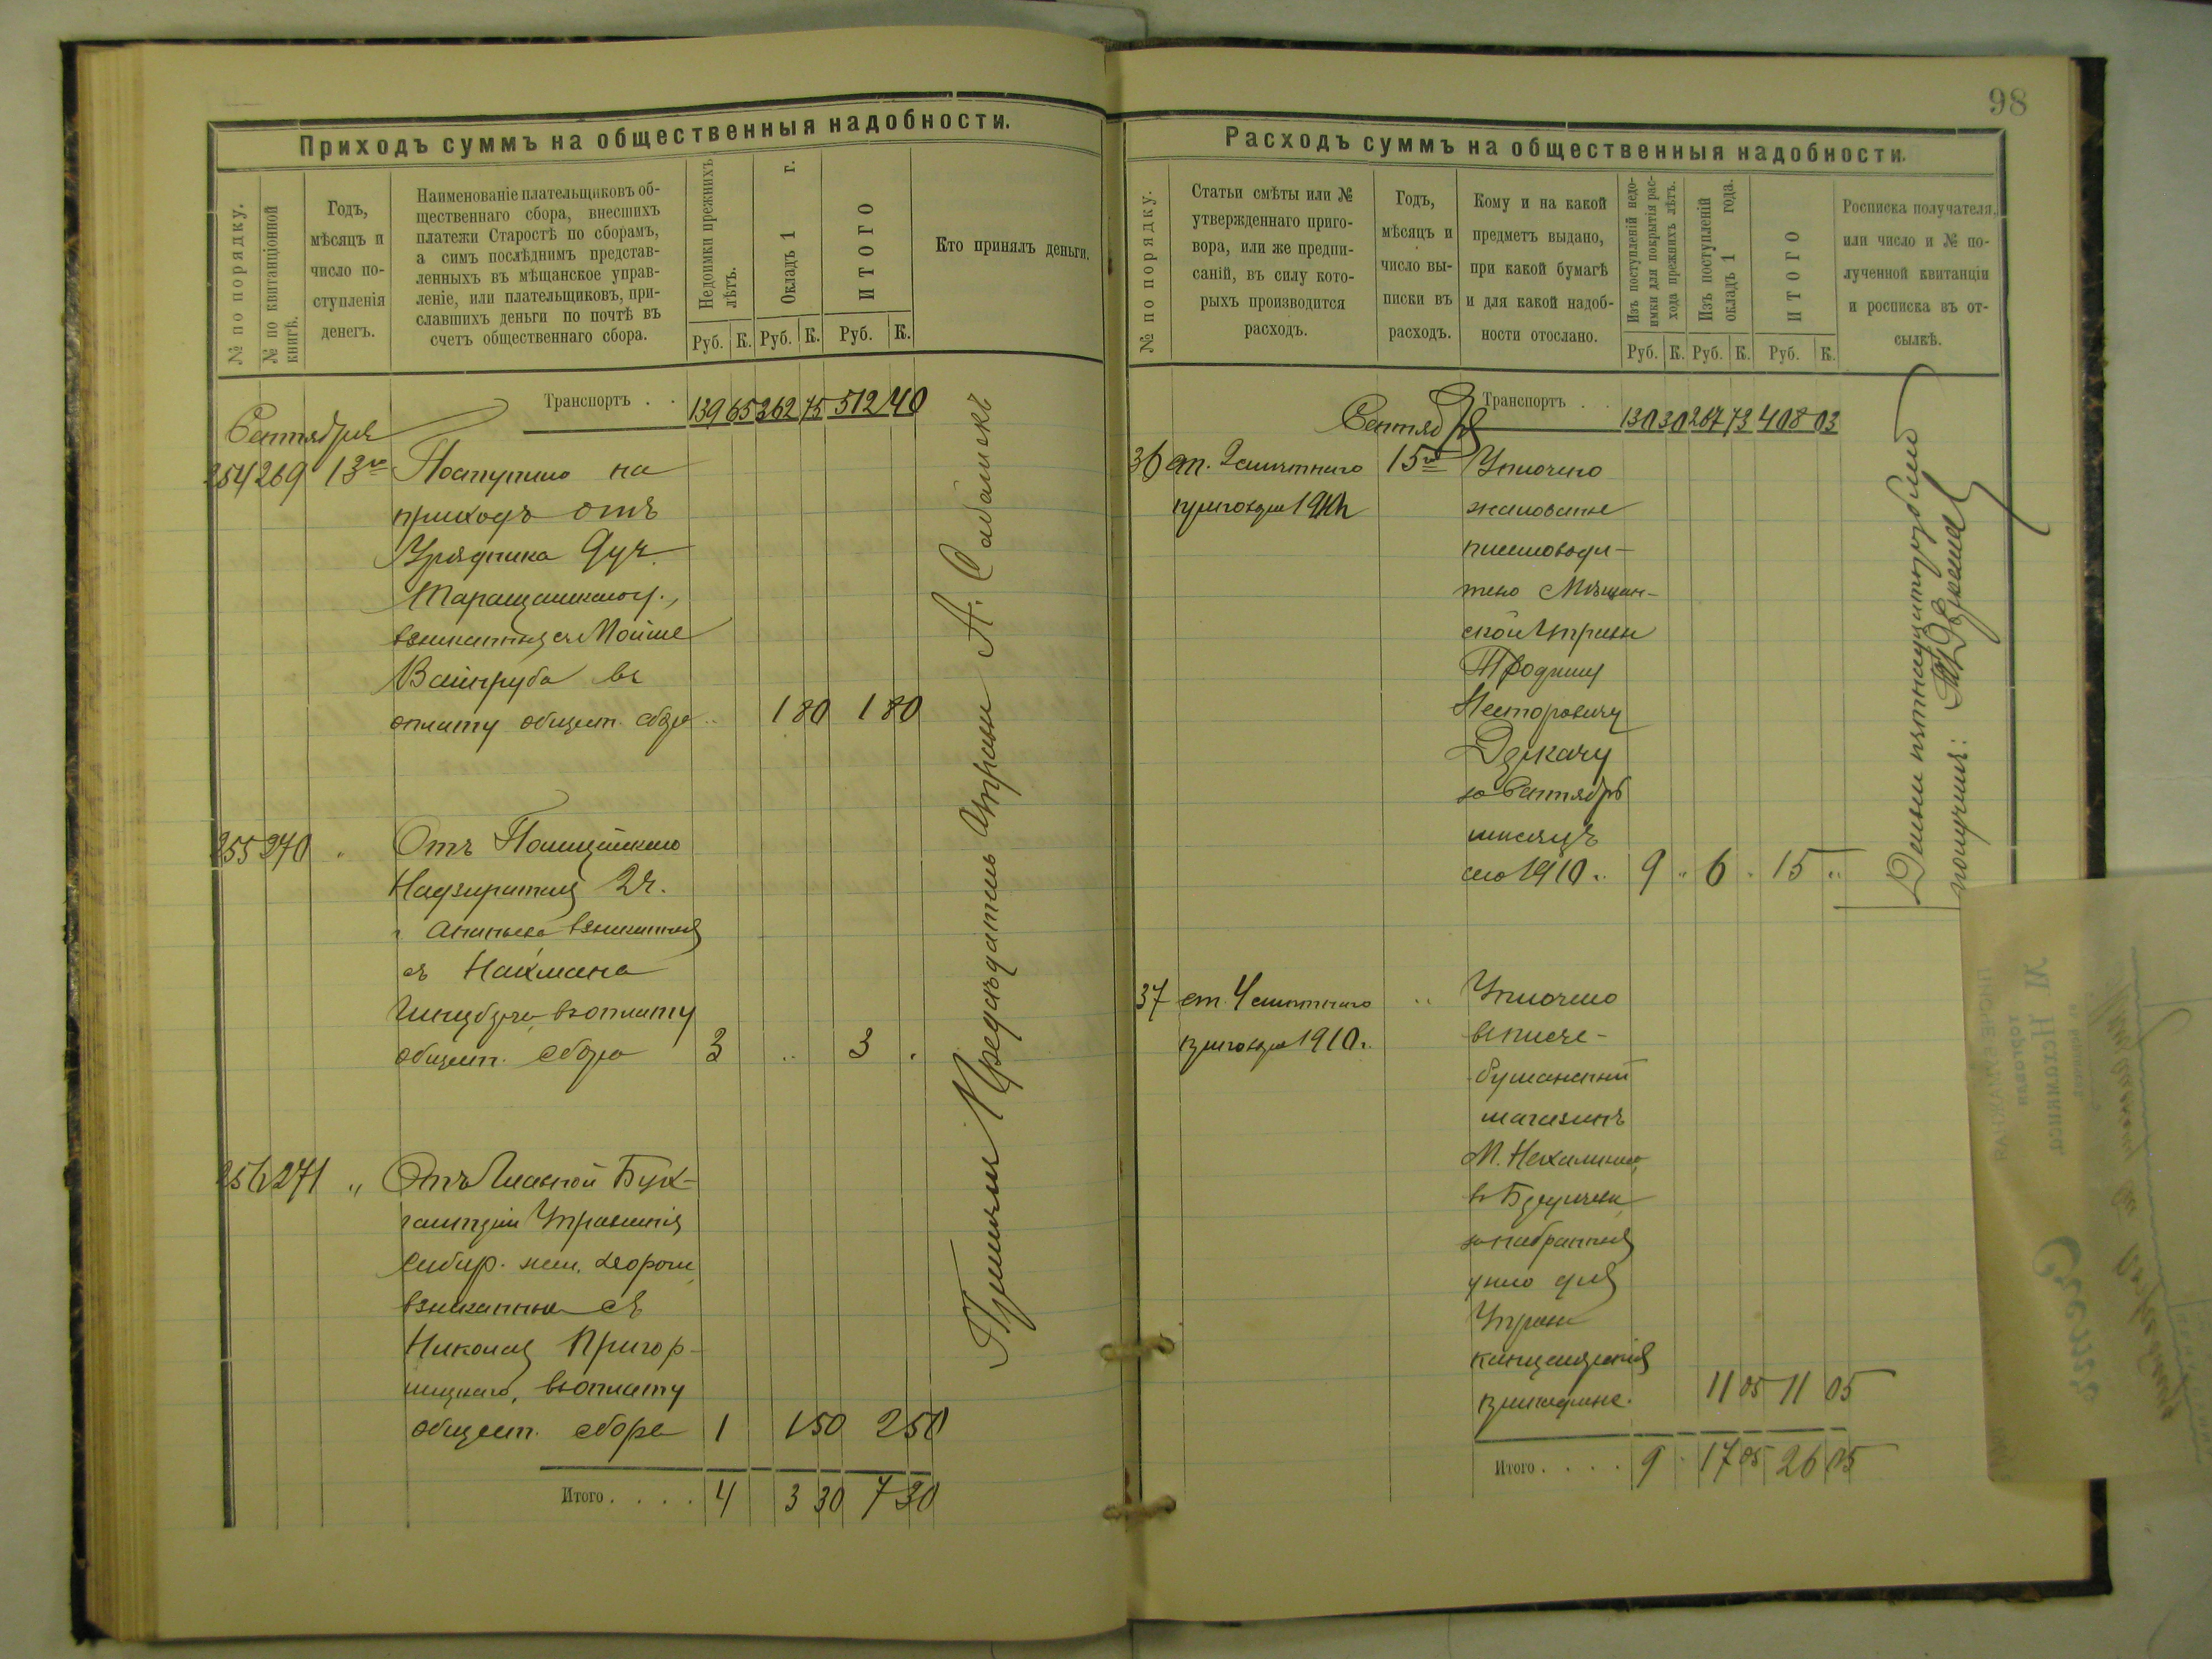 98
Приходъ суммъ на общественныя надобности.
№ по порядку.
№ по квитанціонной книгѣ.
Годъ,
мѣсяцъ и
число по-
ступленія
денегъ.
Наименованіе плательщиковъ об-
щественнаго сбора, внесшихъ
платежи Старостѣ по сборамъ,
а симъ послѣднимъ представ-
ленныхъ въ мѣщанское управ-
леніе, или плательщиковъ, при-
славшихъ деньги по почтѣ въ
счетъ общественнаго сбора.
Недоимки прежнихъ лѣтъ.
Окладъ 1 г.
ИТОГО
Руб. К. Руб. К. Руб. К.
Кто принялъ деньги.
Транспортъ . . 139 65 362 75 512 40
Сентября
254 269 13го Поступило на
приходъ отъ
Урядника 9 уч.
Таращанскаго у.,
взысканныя съ Мойше
Вайнруба въ
оплату общест. сбора .. 1 80 1 80
255 270 " Отъ Полицейскаго
Надзирателя 2 ч.
г. Ананьева взысканныя
съ Нахмана
въ оплату
общест. сбора 3 .. 3 .
256 271 " Отъ Главной Бух-
галтеріи Управленія
Сибир. жел. дороги
взысканные съ
Николая Пригор-
ницкаго, въ оплату
общест. сбора 1 1 50 2 50
Итого . . . . 4 3 30 7 30
Принялъ Предсѣдатель Управы А. Сабанскъ
Расходъ суммъ на общественныя надобности.
№ по порядку.
Статьи смѣты или №
утвержденнаго приго-
вора, или же предпи-
саній, въ силу кото-
рыхъ производится
расходъ.
Годъ,
мѣсяцъ и
число вы-
писки въ
расходъ.
Кому и на какой
предметъ выдано,
при какой бумагѣ
и для какой надоб-
ности отослано.
Изъ поступленій недо-
имки для покрытія рас-
хода прежнихъ лѣтъ.
Изъ поступленій
окладъ 1 года.
ИТОГО
Руб. К. Руб. К. Руб. К.
Росписка получателя,
или число и № по-
лученной квитанціи
и росписка въ от-
сылкѣ.
Транспортъ . . 130 30 267 73 408 03
Сентября
36 ст. 2 смѣтнаго 15го Уплочено
приговора жалованье
письмоводи-
телю Мѣщан-
ской Управы
Трофиму
Несторовичу
Дзюкачу
за Сентябрь
мѣсяцъ
сего 1910 г. 9 " 6 " 15 "
37 ст. 4 смѣтнаго " Уплочено
приговора 1910 г. въ писче-
бумажный
магазинъ
М. Нехамкиса
въ Бердичевѣ
за набранныя
у него для
Управы
канцелярскія
принадлежн. 11 05 11 05
Итого . . . . 9 " 17 05 26 05
Деньги пятнадцать рублей
получилъ: